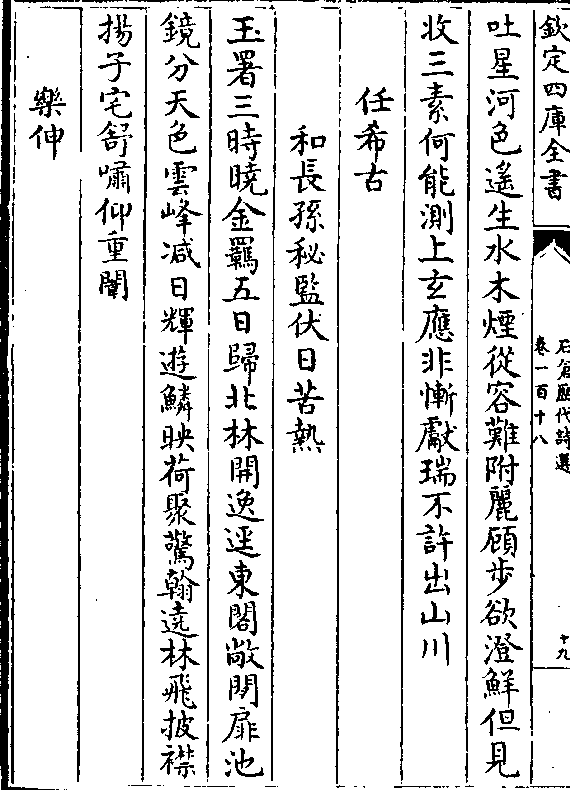 欽定四庫全書
石倉歷代詩選
卷一百十八
十九
吐星河色遙生水木煙從容難附麗顧步欲澄鮮但見
收三素何能測上玄應非慚獻瑞不許出山川
任希古
和長孫秘監伏日苦熱
玉署三時曉金羈五日歸北林開逸逕東閣敞閒扉池
鏡分天色雲峰减日輝遊鱗映荷聚驚翰遶林飛披襟
揚子宅舒嘯仰重闈
樂伸